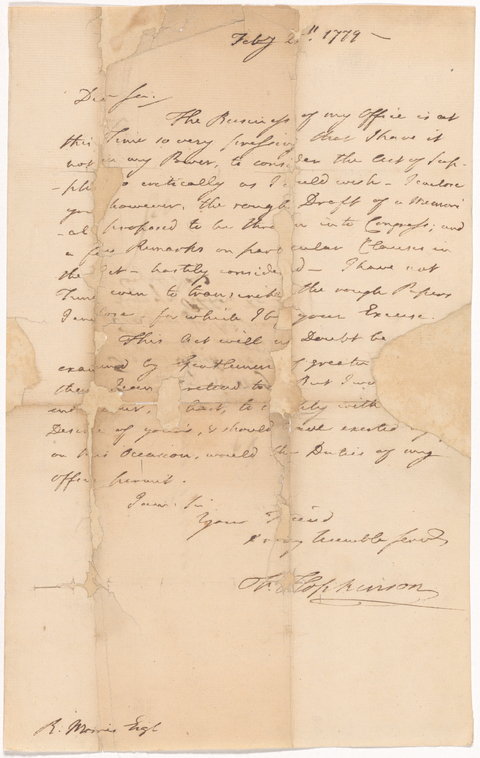 Feby 1779 –
Dear Sir,
The Business of my Office is at
this Time so very pressing that I have it
not in my Power, to consider the Act of Sup-
-pl s critically as I uld wish – I enclose
you however, the rough Draft of a Memori
-al proposed to be thr n into Congress; and
a few Remarks on par cular Clauses in
the Act – hastily consider d – I have not
Time even to transcribe the rough Papers
I en lose, for which I b your Excuse.
This Act will no Doubt be
examined by Gentlemen of greate
than I can retend to But I wo
, at least, to c ply with
Desire of yours, & should ave exerted my
on this Occasion, would the Duties of my
Office permit.
I am Sir
Your Friend
& very humble Servt
Fs. Hopkinson
R. Morris Esqr